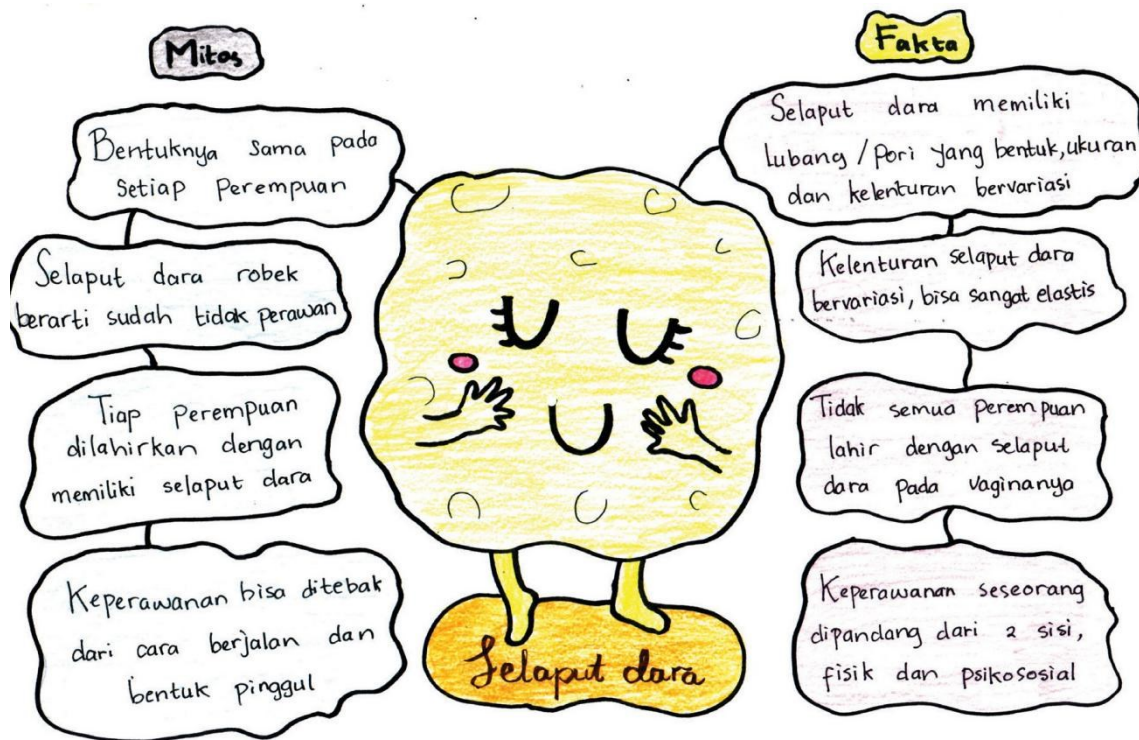 Mitos
Bentuknya sama pada
setiap perempuan
Selaput dara robek
berarti sudah tidak perawan
Tiap perempuan
dilahirkan dengan
memiliki selaput dara
Keperawanan bisa ditebak
dari cara berjalan dan
bentuk pinggul
Selaput dara
Fakta
Selaput dara memiliki
lubang / pori yang bentuk, ukuran
dan kelenturan bervariasi
Kelenturan selaput dara
bervariasi, bisa sangat elastis
Tidak semua perempuan
lahir dengan selaput
dara pada vaginanya
Keperawanan seseorang
dipandang dari 2 sisi,
fisik dan psikososial